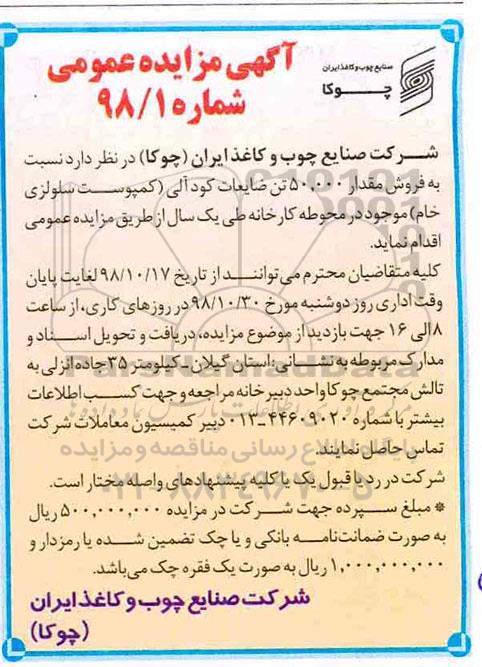 آگهی مزایده عمومی
شماره ۹۸/۱
صنایع چوب و کاغذ ایران
چوکا
شرکت صنایع چوب و کاغذ ایران (چوکا) در نظر دارد نسبت
به فروش مقدار ۵۰,۰۰۰ تن ضایعات کود آلی (کمپوست سلولزی
خام) موجود در محوطه کارخانه طی یک سال از طریق مزایده عمومی
اقدام نماید.
کلیه متقاضیان محترم می‌توانند از تاریخ ۹۸/۱۰/۱۷ لغایت پایان
وقت اداری روز دوشنبه مورخ ۹۸/۱۰/۳۰ در روزهای کاری، از ساعت
۸ الی ۱۶ جهت بازدید از موضوع مزایده، دریافت و تحویل اسناد و
مدارک مربوطه به نشانی: استان گیلان - کیلومتر ۳۵ جاده انزلی به
تالش مجتمع چوکا واحد دبیرخانه مراجعه و جهت کسب اطلاعات
بیشتر با شماره ۴۴۶۰۹۰۲۰-۰۱۳ دبیر کمیسیون معاملات شرکت
تماس حاصل نمایند.
شرکت در رد یا قبول یک یا کلیه پیشنهادهای واصله مختار است.
* مبلغ سپرده جهت شرکت در مزایده ۵۰۰,۰۰۰,۰۰۰ ریال
به صورت ضمانت‌نامه بانکی و یا چک تضمین شده یا رمزدار و
۱,۰۰۰,۰۰۰,۰۰۰ ریال به صورت یک فقره چک می‌باشد.
شرکت صنایع چوب و کاغذ ایران
(چوکا)
ParsNamadData
پایگاه اطلاع رسانی مناقصه و مزایده
۰۲۱-۸۸۳۴۹۶۷۰-۵